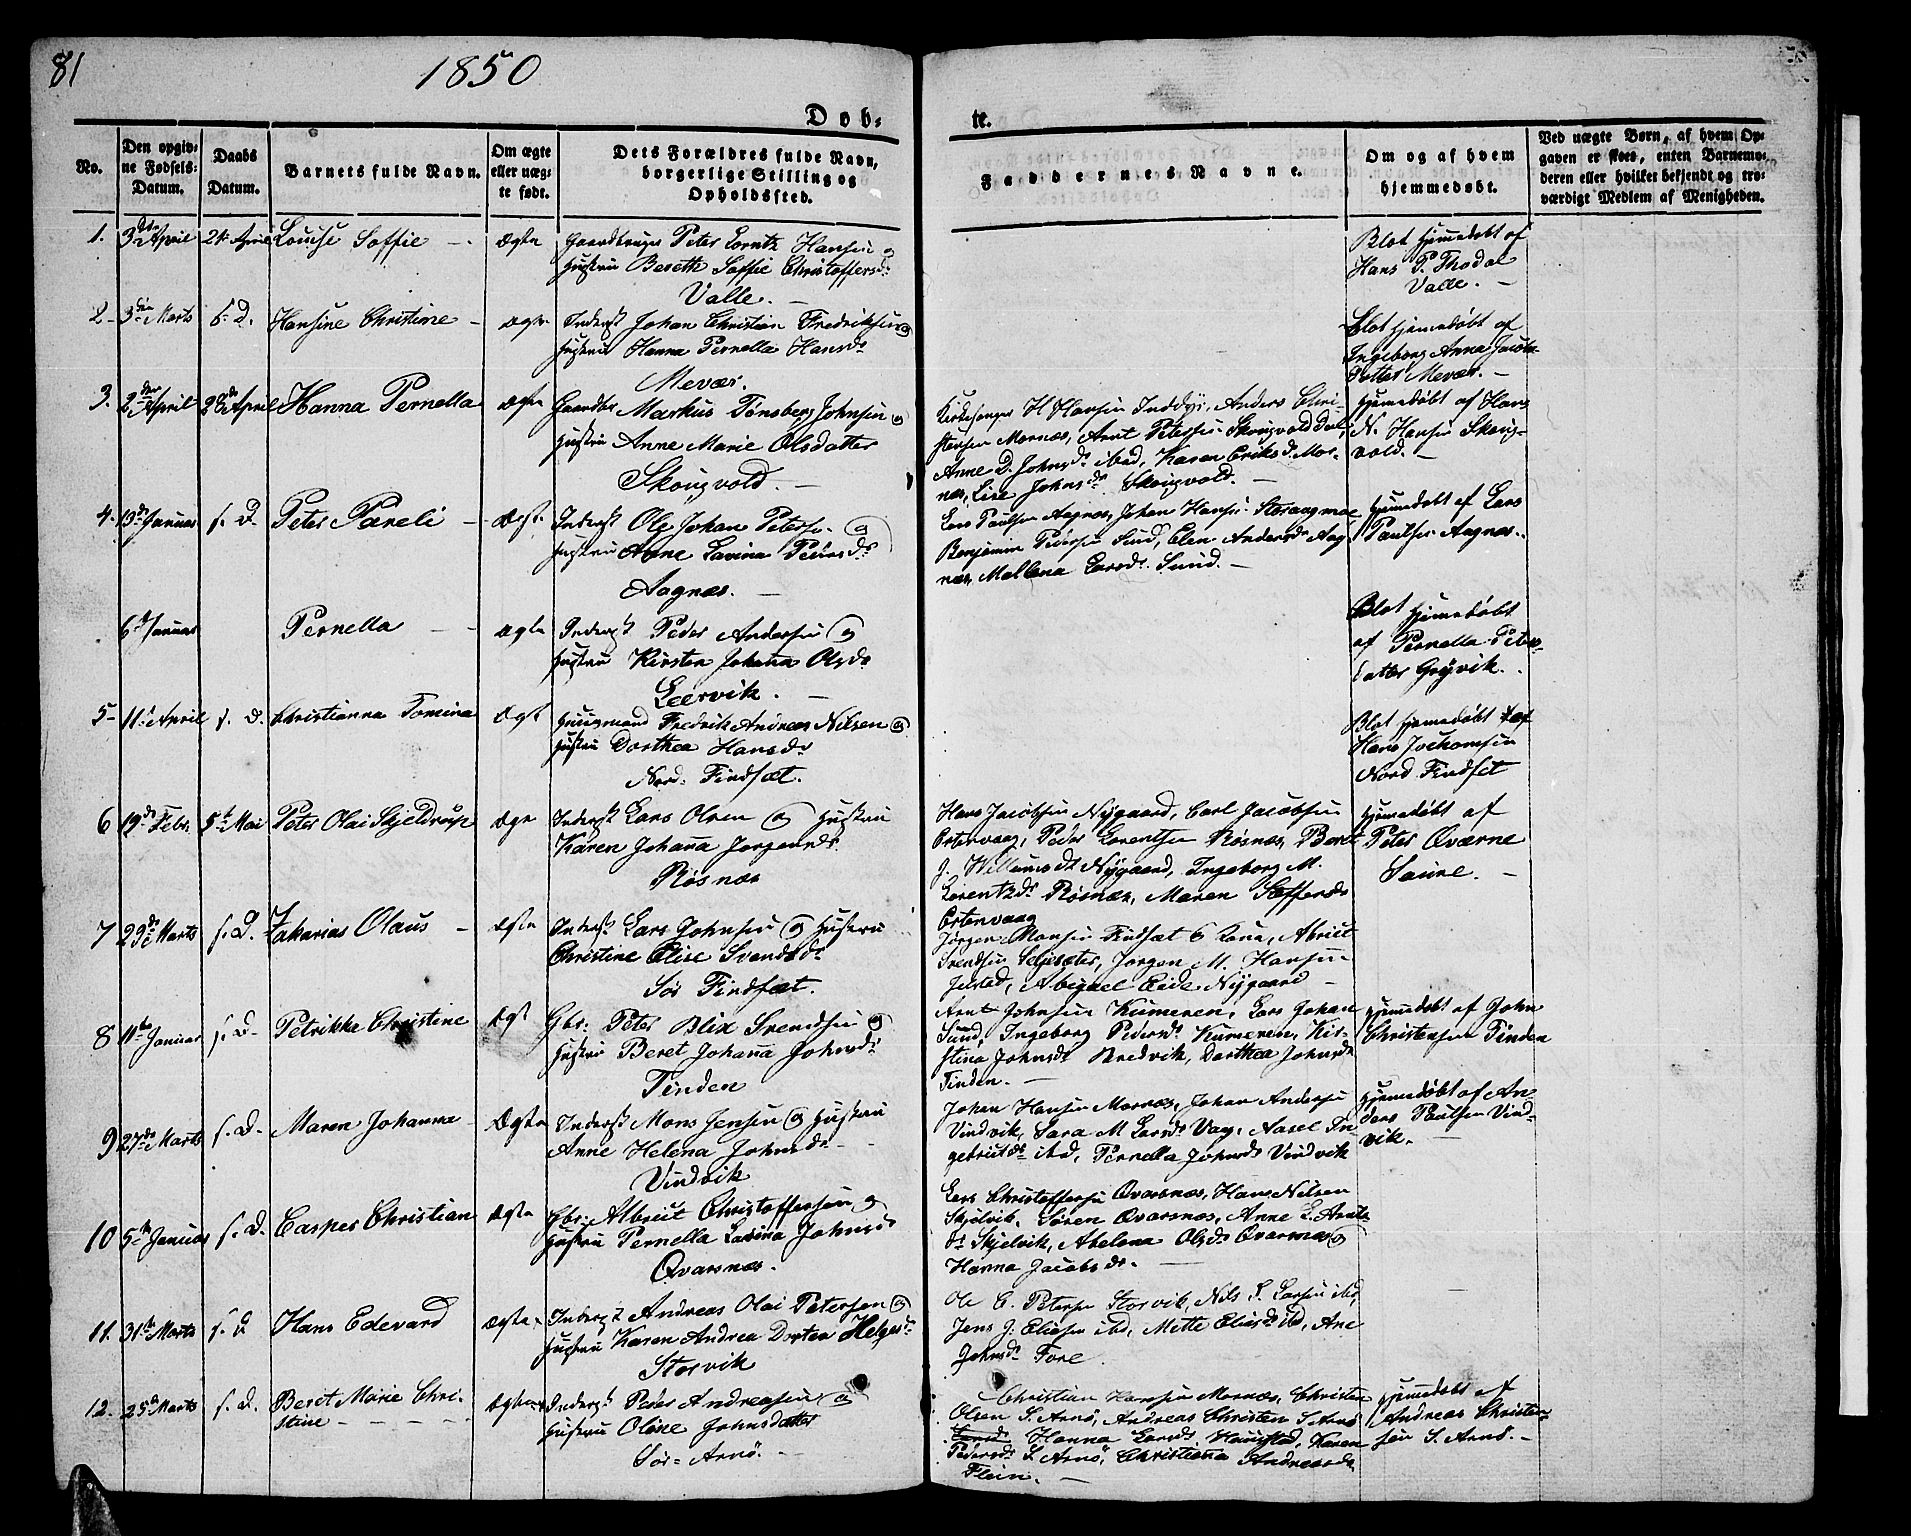 81
1850
Døb-
te.
No.
Den opgiv-
ne Fødsels-
Datum.
Daabs
Datum.
Barnets fulde Navn.
Om ægte
eller uæg-
te født.
Dets Forældres fulde Navn,
borgerlige Stilling og
Opholdssted.
Faddernes Navne.
Om og af hvem
hjemmedøbt.
Ved uægte Børn, af hvem Op-
gaven er skeet, enten Barnemo-
deren eller hvilket bekjendt og tro-
værdigt Medlem af Menigheden.
1. 3die April 21 April Louise Soffie ægte Gaardbruger Peter Lorntz Hansen og
Hustru Bereth Soffie Christoffersdr
Valle.
Blot hjemmedøbt af
Hans P. Thodal
Valle.
2 3die Marts s. D. Hansine Christine ægte Inderst Johan Christian Fredriksen og
Hustru Hanna Pernella Hansdr
Mevær.
Blot hjemmedøbt af
Ingeborg Anna Jacobs-
datter Mevær.
3. 2den April 28de April Hanna Pernella ægte Gaardbr Markus Tønsberg Johnsen og
Hustru Anne Marie Olsdatter
Skougvold.
Kirkesanger H Hansen Inddyr, Anders Chri-
stensen Mornæs, Arnt Petersen Skougvold
Anne D. Johnsdr ibid, Karen Eriksd. Mor-
næs, Lise Johnsdr Skougvold.
Hjemmedøbt af Hans
N. Hansen Skoug-
vold.
4. 13de Januar s. D. Peter Pareli ægte Inderst Ole Johan Peterse og
Hustru Anne Lavina Pedersdr
Aagnæs.
Lars Paulsen Aagnæs, Johan Hansen
Benjamin Pedersen Sund, Elen Andersdr Aag-
næs, Mallena Larsdr Sund.
Hjemmedøbt af Lars
Paulsen Aagnæs.
6te Januar Pernella ægte Inderst Peder Andersen og
Hustru Kirsten Johanna Olsdr
Leervik.
Blot hjemmedøbt
af Pernella Peters-
datter
5 11te April s. D. Christianna Tomina ægte Huusmand Fredrik Andreas Nilsen og
Hustru Dorthea Hansdr
Nord Findsæt.
Blot hjemmedøbt af
Hans Jochomsen
Nord Findset
6 19de Febr. 5te Mai Peter Olai Skjeldrup ægte Inderst Lars Olsen og Hustru
Karen Johanna Jørgensdr
Røsnæs
Hans Jacobsen Nygaard, Carl Jacobsen
Ertenvaag, Peder Lorentsen Røsnæs, Beret
J. Willumsdr Nygaard, Ingeborg M.
Lorentzdr Røsnæs, Maren
Ertenvaag
Hjemmedøbt af
Peter Qværne
Saure.
7 29de Marts s. D. Zakarias Olaus ægte Inderst Lars Johnsen og Hustru
Christine Elise Svendsdr
Sør Findsæt.
Jørgen Monsen Findsæt
Svendsen Jørgen M. Hansen
Abigael Nygaard
8 11te Januar s. D. Petrikke Christine ægt Gbr: Peter Blix Svendsen og
Hustru Beret Johanna Johnsdr
Tinden
Arnt Johnsen Kumeren, Lars Johan
Sund, Ingeborg Pedersdr Kumeren, Kir-
stina Johnsdr Bredvik, Dorthea Johnsdr
Tinden.
Hjemmedøbt af John
Christensen Tinden
9 27de Marts s. D. Maren Johanna ægte Inderst Mons Jensen og Hustru
Anne Helena Johnsdr
Vindvik
Johan Hansen Mornæs, Johan Andersen
Vindvik, Sara M Larsdr Vaag, Aasel In-
gebritdr ibid, Pernella Johnsdr Vindvik
Hjemmedøbt af An-
ders Paulsen Vind-
vik.
10 5te Januar s. D. Casper Christian ægte Gbr: Albrigt Christoffersen og
Hustru Pernella Lavina Johnsdr
Qvarsnæs.
Lars Christoffersen Qvarsnæs, Hans Nilsen
Skjelvik, Søren Qvarsnæs, Anne L. Arnts-
dr Skjelvik, Abelona Olsdr Qvarsnæs og
Hanna Jacobsdr.
11. 31te Marts s. D Hans Edevard ægte Inderst Andreas Olai Petersen og
Hustru Karen Andrea Helgesdr
Storvik
Ole C. Petersen Storvik, Nils L. Larsen ibd,
Jens J. Eliasen ibd, Mette Eliasdr ibd, Ane
Johnsdr Fore.
12. 25de Marts s. D. Beret Marie Chri-
stine ægte Inderst Peder Andreasen og
Hustru Oline Johnsdatter
Sør-Arnø.
Christian Hansen Mornæs, Christen
Olsen S. Arnø, Andreas Christen S Arnø
Hanna Larsdr Karen
Pedersdr S. Arnø, Christianna Andreasdr
Flein.
Hjemmedøbt af
Andreas Christen-
sen S. Arnø.